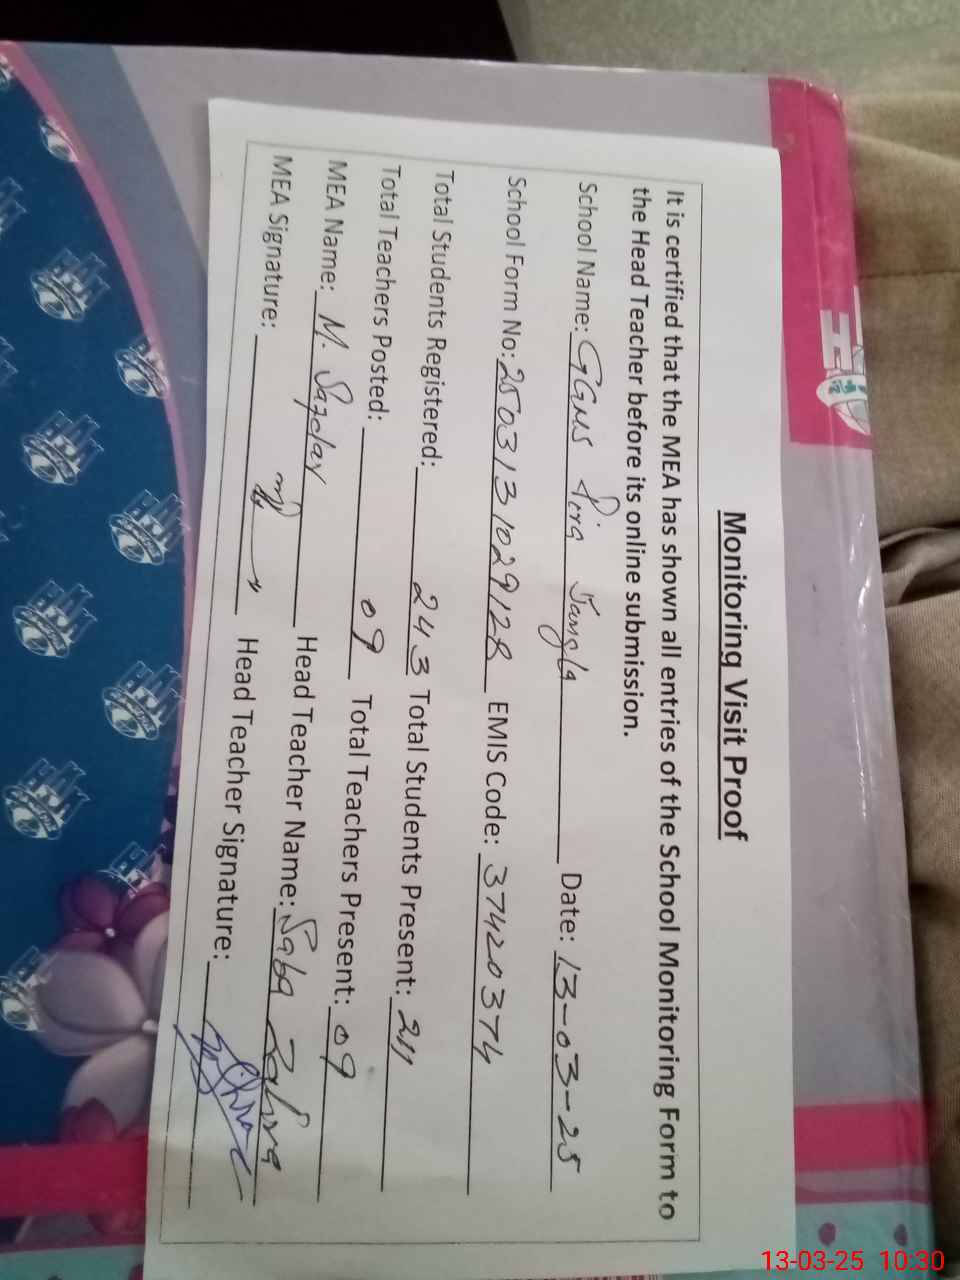 Monitoring Visit Proof
It is certified that the MEA has shown all entries of the School Monitoring Form to
the Head Teacher before its online submission.
School Name: GGMS Pira Jangla Date: 13-03-25
School Form No: 2503131029128 EMIS Code: 37420374
Total Students Registered: 243 Total Students Present: 211
Total Teachers Posted: 09 Total Teachers Present: 09
MEA Name: M. Safdar Head Teacher Name: Saba Zahra
MEA Signature: Head Teacher Signature:
13-03-25 10:30